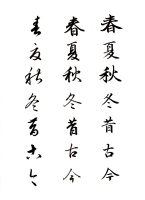 春夏秋冬昔古今
春夏秋冬昔古今
春夏秋冬昔古今